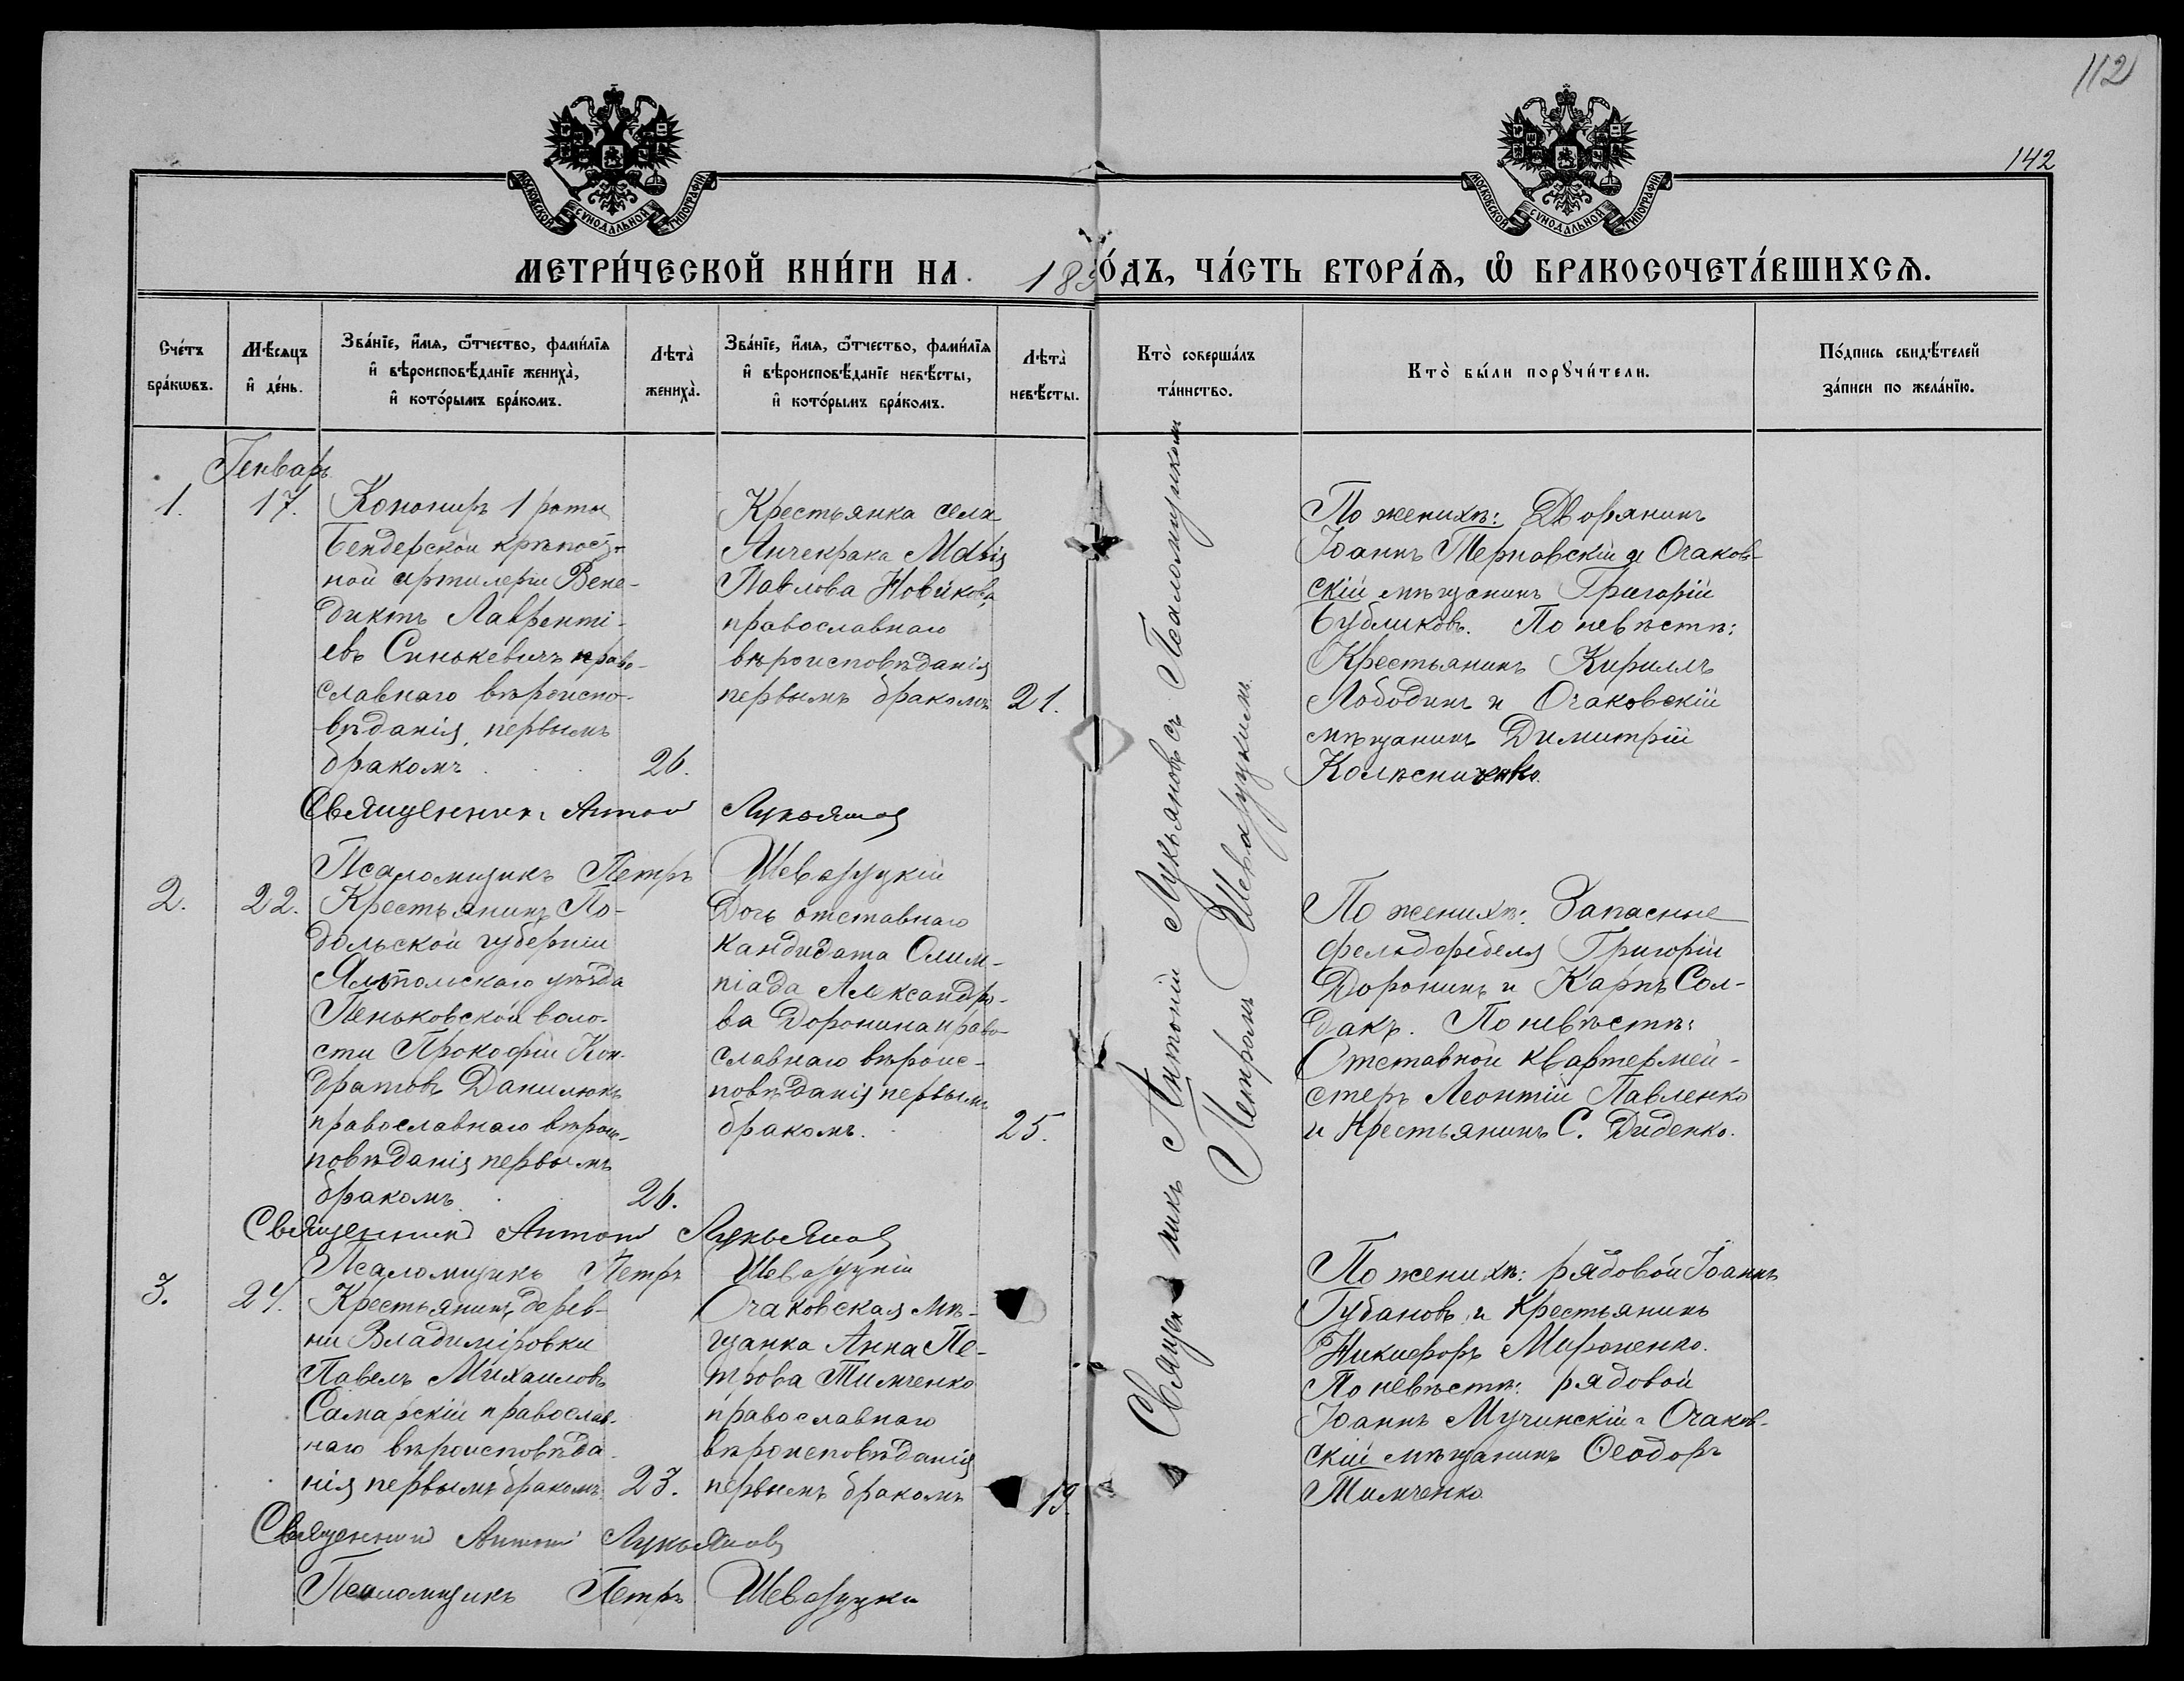 112
142
МОСКОВСКОЙ СѴНОДАЛЬНОЙ ТИПОГРАФІИ
МОСКОВСКОЙ СѴНОДАЛЬНОЙ ТИПОГРАФІИ
МЕТРИ́ЧЕСКОЙ КНИ́ГИ НА 189
О́ДЪ, ЧА́СТЬ ВТОРА́Ѧ, Ѽ БРАКОСОЧЕТА́ВШИХСѦ.
Сче́тъ бра́кѡвъ.
Мѣ́сяцъ и҆ де́нь.
Зва́нїе, и҆́мѧ, ѻ҆́тчество, фами́лїѧ
и҆ вѣроисповѣ́данїе жениха̀,
и҆ кото́рымъ бра́комъ.
Лѣта̀ жениха̀.
Зва́нїе, и҆́мѧ, ѻ҆́тчество, фами́лїѧ
и҆ вѣроисповѣ́данїе невѣ́сты,
и҆ кото́рымъ бра́комъ.
Лѣта̀ невѣ́сты.
Кто̀ соверша́лъ
та́инство.
Кто̀ бы́ли порꙋчи́тели.
По́дпись свидѣ́телей
за́писи по жела́нїю.
Генварь
1.
17.
Канониръ 1 роты
Бендерской крѣпост-
ной артилеріи Вене-
диктъ Лаврентi-
евъ Синькевичъ право-
славнаго вѣроиспо-
вѣданія, первымъ
бракомъ
26.
Крестьянка села
Анчекрака Марія
Павлова Новикова,
православнаго
вѣроисповѣданія
первымъ бракомъ
21.
По женихѣ: Дворянинъ
Іоаннъ Терновскій и Очаков-
скій мѣщанинъ Григорій
Бубликовъ. По невѣстѣ:
Крестьянинъ Кириллъ
Лободинъ и Очаковскій
мѣщанинъ Димитрій
Колѣсниченко.
Священникъ Антоній Лукьяновъ
Псаломщикъ Петръ Шеваруцкій
2.
22.
Крестьянинъ По-
дольской губерніи
Ямпольскаго уѣзда
Пеньковской воло-
сти Прокофій Кон-
дратовъ Данилюкъ
православнаго вѣроис-
повѣданія первымъ
бракомъ
26.
Дочь отставнаго
кандидата Олим-
піада Александро-
ва Доронина право-
славнаго вѣроис-
повѣданія первымъ
бракомъ.
25.
По женихѣ: Запасные
фельдфебеля Григорій
Доронинъ и Карпъ Сол-
дакъ. По невѣстѣ:
Отставной квартермей-
стеръ Леонтій Павленко
и Крестьянинъ С. Диденко.
Священникъ Антоній Лукьяновъ
Псаломщикъ Петръ Шеваруцкій
3.
24.
Крестьянинъ дерев-
ни Владиміровки
Павелъ Михаиловъ
Самарскій православ-
наго вѣроисповѣда-
нія первымъ бракомъ
23.
Очаковская мѣ-
щанка Анна Пе-
трова Тимченко
православнаго
вѣроисповѣданія
первымъ бракомъ
19.
По женихѣ: рядовой Іоаннъ
Губановъ и Крестьянинъ
Никифоръ Мироненко.
По невѣстѣ: рядовой
Іоаннъ Мучинскій и Очаков-
скій мѣщанинъ Ѳеодоръ
Тимченко
Священникъ Антоній Лукьяновъ
Псаломщикъ Петръ Шеваруцкій
Священникъ Антоній Лукьяновъ съ Псаломщикомъ
Петромъ Шеваруцкимъ.